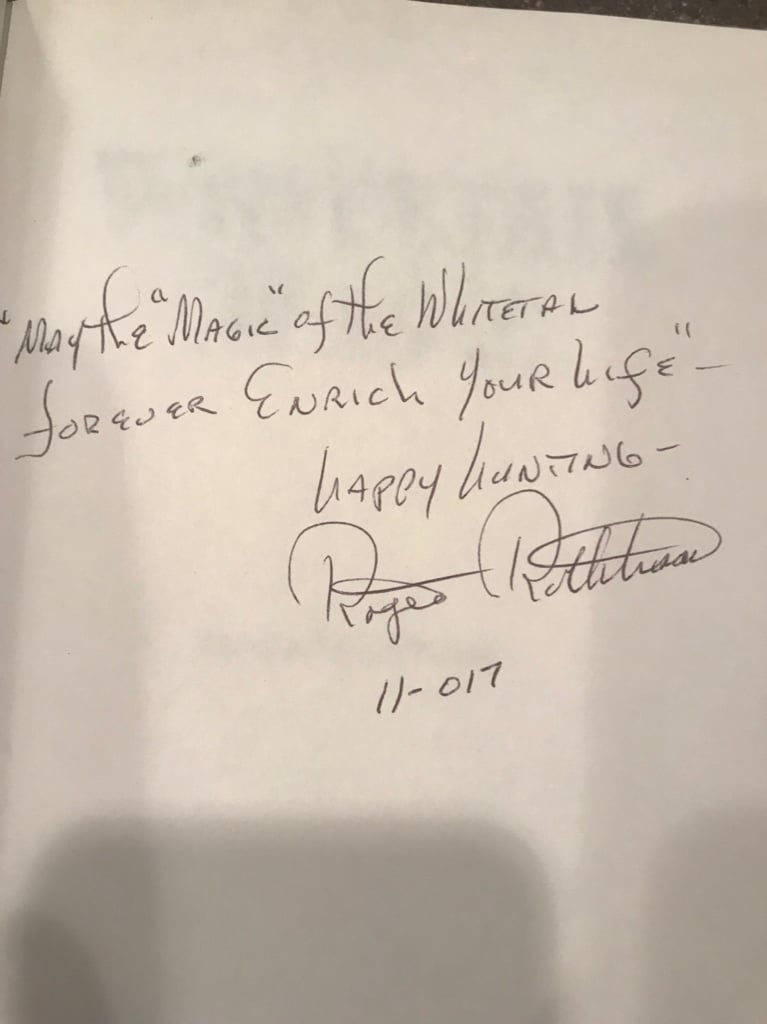 "May the "Magic" of the Whitetail
forever Enrich Your Life" –
Happy Hunting –
Roger Rothhaar
11-017